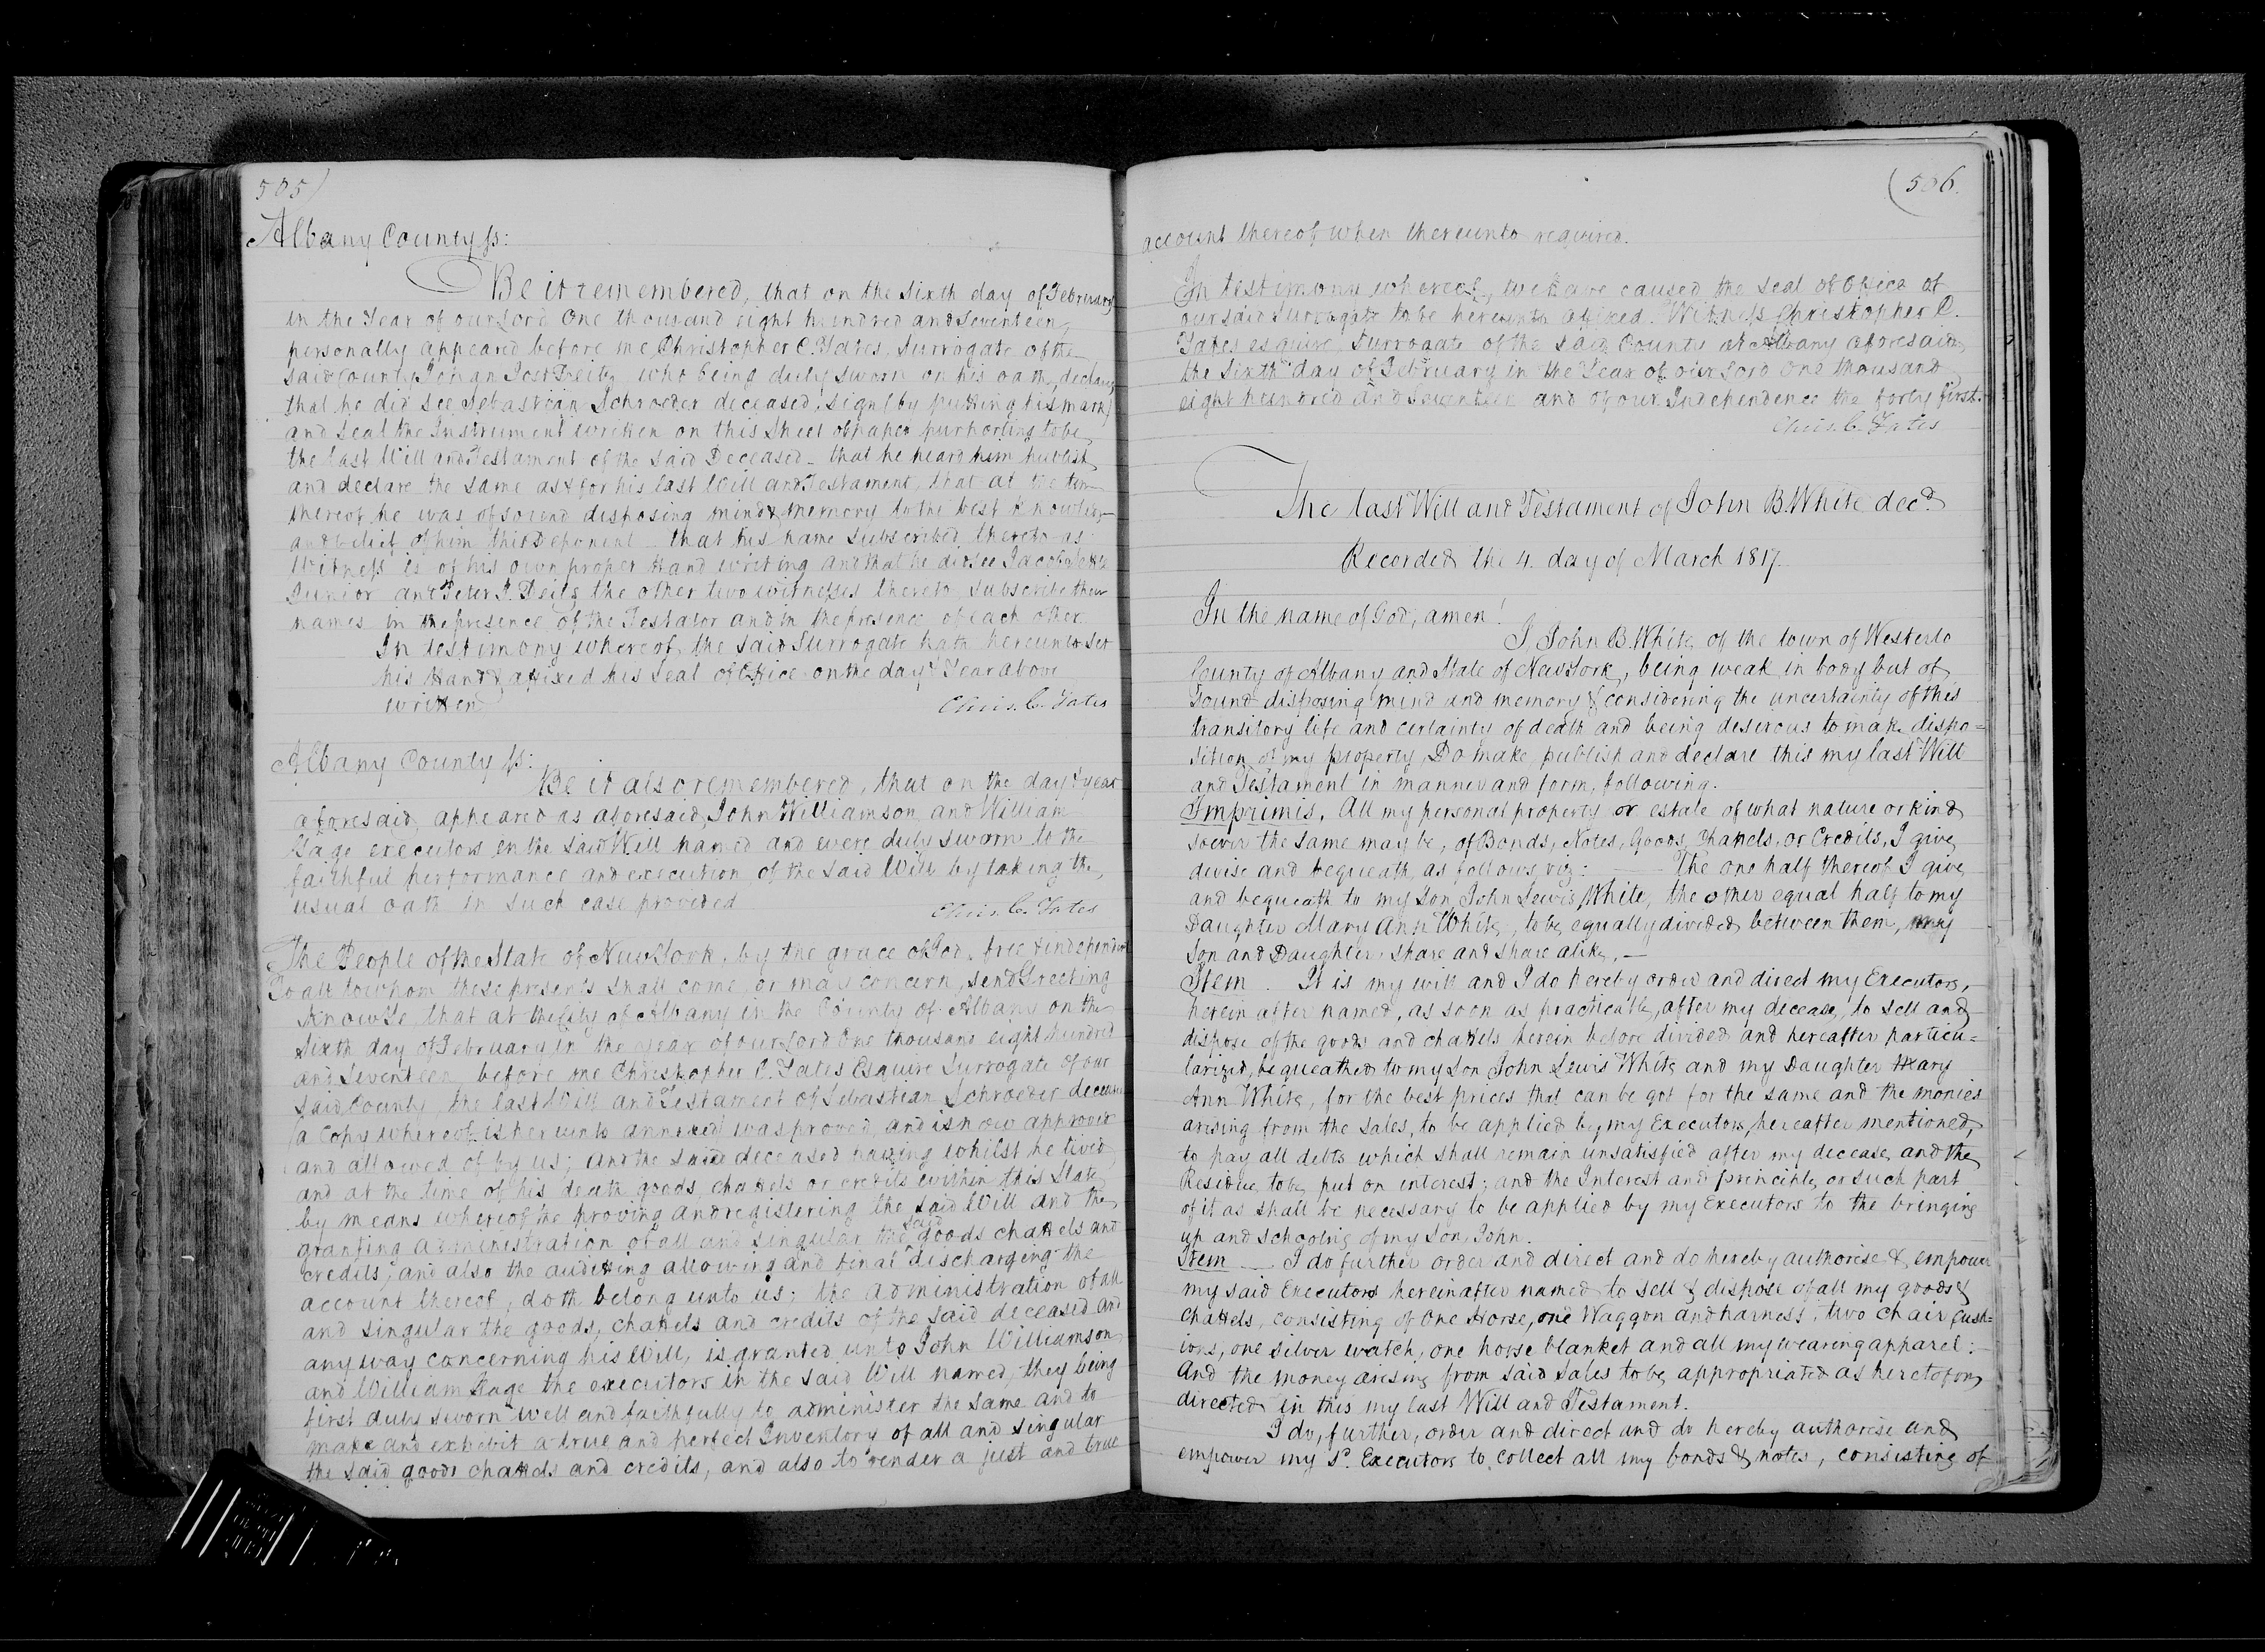 505)
Albany County ss:
Be it remembered, that on the Sixth day of February
in the Year of our Lord One thousand eight hundred and Seventeen,
personally appeared before me, Christopher C. Yates, Surrogate of the
said County Johan Jost Deitz who being duly sworn on his oath, declares
that he did see Sebastian Schroeder deceased, sign (by putting his mark)
and Seal the Instrument written on this Sheet of paper purporting to be
the last Will and Testament of the said Deceased - that he heard him publish
and declare the same as & for his last Will and Testament, that at the time
thereof, he was of sound disposing mind & memory to the best knowledge
and belief of him this Deponent that his name Subscribed thereto as
Witness is of his own proper Hand writing and that he did see Jacob
Junior and Peter J. Deitz the other two witnesses thereto subscribe their
names in the presence of the Testator and in the presence of each other
In testimony whereof, the said Surrogate hath hereunto Set
his Hand & affixed his Seal of Office on the day & Year above
written
Chris. C. Yates
Albany County ss:
Be it also remembered, that on the day & year
aforesaid, appeared as aforesaid, John Williamson and William
Gage executors in the said Will named and were duly sworn to the
faithful performance and execution of the said Will by taking the
usual oath in such case provided
Chris. C. Yates
The People of the State of New York, by the grace of God, free & independent
To all to whom these presents shall come or may concern, send Greeting
Know Ye, that at the City of Albany in the County of Albany on the
Sixth day of February in the year of our Lord One thousand eight hundred
and Seventeen before me Christopher C. Yates Esquire Surrogate of our
said County, the last Will and Testament of Sebastian Schroeder deceased
(a Copy whereof is hereunto annexed) was proved, and is now approved
and allowed of by us; and the said deceased having whilst he lived
and at the time of his death goods, chattels or credits within this State
by means whereof the proving and registering the said Will and the
granting administration of all and singular the said goods chattels and
credits, and also the auditing allowing and final discharging the
account thereof, doth belong unto us; the administration of all
and singular the goods, chattels and credits of the said deceased and
any way concerning his Will, is granted unto John Williamson
and William Gage the executors in the said Will named, they being
first duly sworn well and faithfully to administer the same and to
make and exhibit a true and perfect Inventory of all and singular
the said goods chattels and credits, and also to render a just and true
(506.
account thereof when thereunto required.
In testimony whereof, we have caused the Seal of Office of
our said Surrogate to be hereunto affixed. Witness Christopher C.
Yates esquire Surrogate of the said County at Albany aforesaid
the Sixth day of February in the Year of our Lord One thousand
eight hundred and Seventeen and of our Independence the forty first.
Chris. C. Yates
The last Will and Testament of John B. White decd
Recorded the 4. day of March 1817.
In the name of God, amen!
I, John B. White, of the town of Westerlo
County of Albany and State of New York, being weak in body but of
Sound disposing mind and memory & considering the uncertainty of this
transitory life and certainty of death and being desirous to make dispo=
sition of my property, Do make, publish and declare this my last Will
and Testament in manner and form, following.
Imprimis, All my personal property or estate of what nature or kind
soever the same may be, of Bonds, Notes, Goods, Chattels, or Credits, I give
devise and bequeath, as follows, viz: The one half thereof I give
and bequeath to my Son, John Lewis White, the other equal half to my
Daughter Mary Ann White, to be equally divided between them, my
Son and Daughter, share and share alike. —
Item. It is my will and I do hereby order and direct my Executors,
herein after named, as soon as practicable, after my decease, to sell and
dispose of the goods and chattels herein before divided and hereafter particu=
larized, bequeathed to my Son John Lewis White and my Daughter Mary
Ann White, for the best prices that can be got for the same and the monies
arising from the Sales, to be applied by my Executors, hereafter mentioned,
to pay all debts which shall remain unsatisfied after my decease, and the
Residue, to be put on interest; and the Interest and principle, or such part
of it as shall be necessary to be applied by my Executors to the bringing
up and schooling of my Son, John.
Item — I do further order and direct and do hereby authorise & empower
my said Executors hereinafter named to sell & dispose of all my goods &
Chattels, consisting of One Horse, one Waggon and harness, two chair Cush=
ions, one silver watch, one horse blanket and all my wearing apparel:
And the money arising from said Sales to be appropriated as heretofore
directed in this my last Will and Testament.
I do, further, order and direct and do hereby authorise and
empower my Sd. Executors to collect all my bonds & notes, consisting of